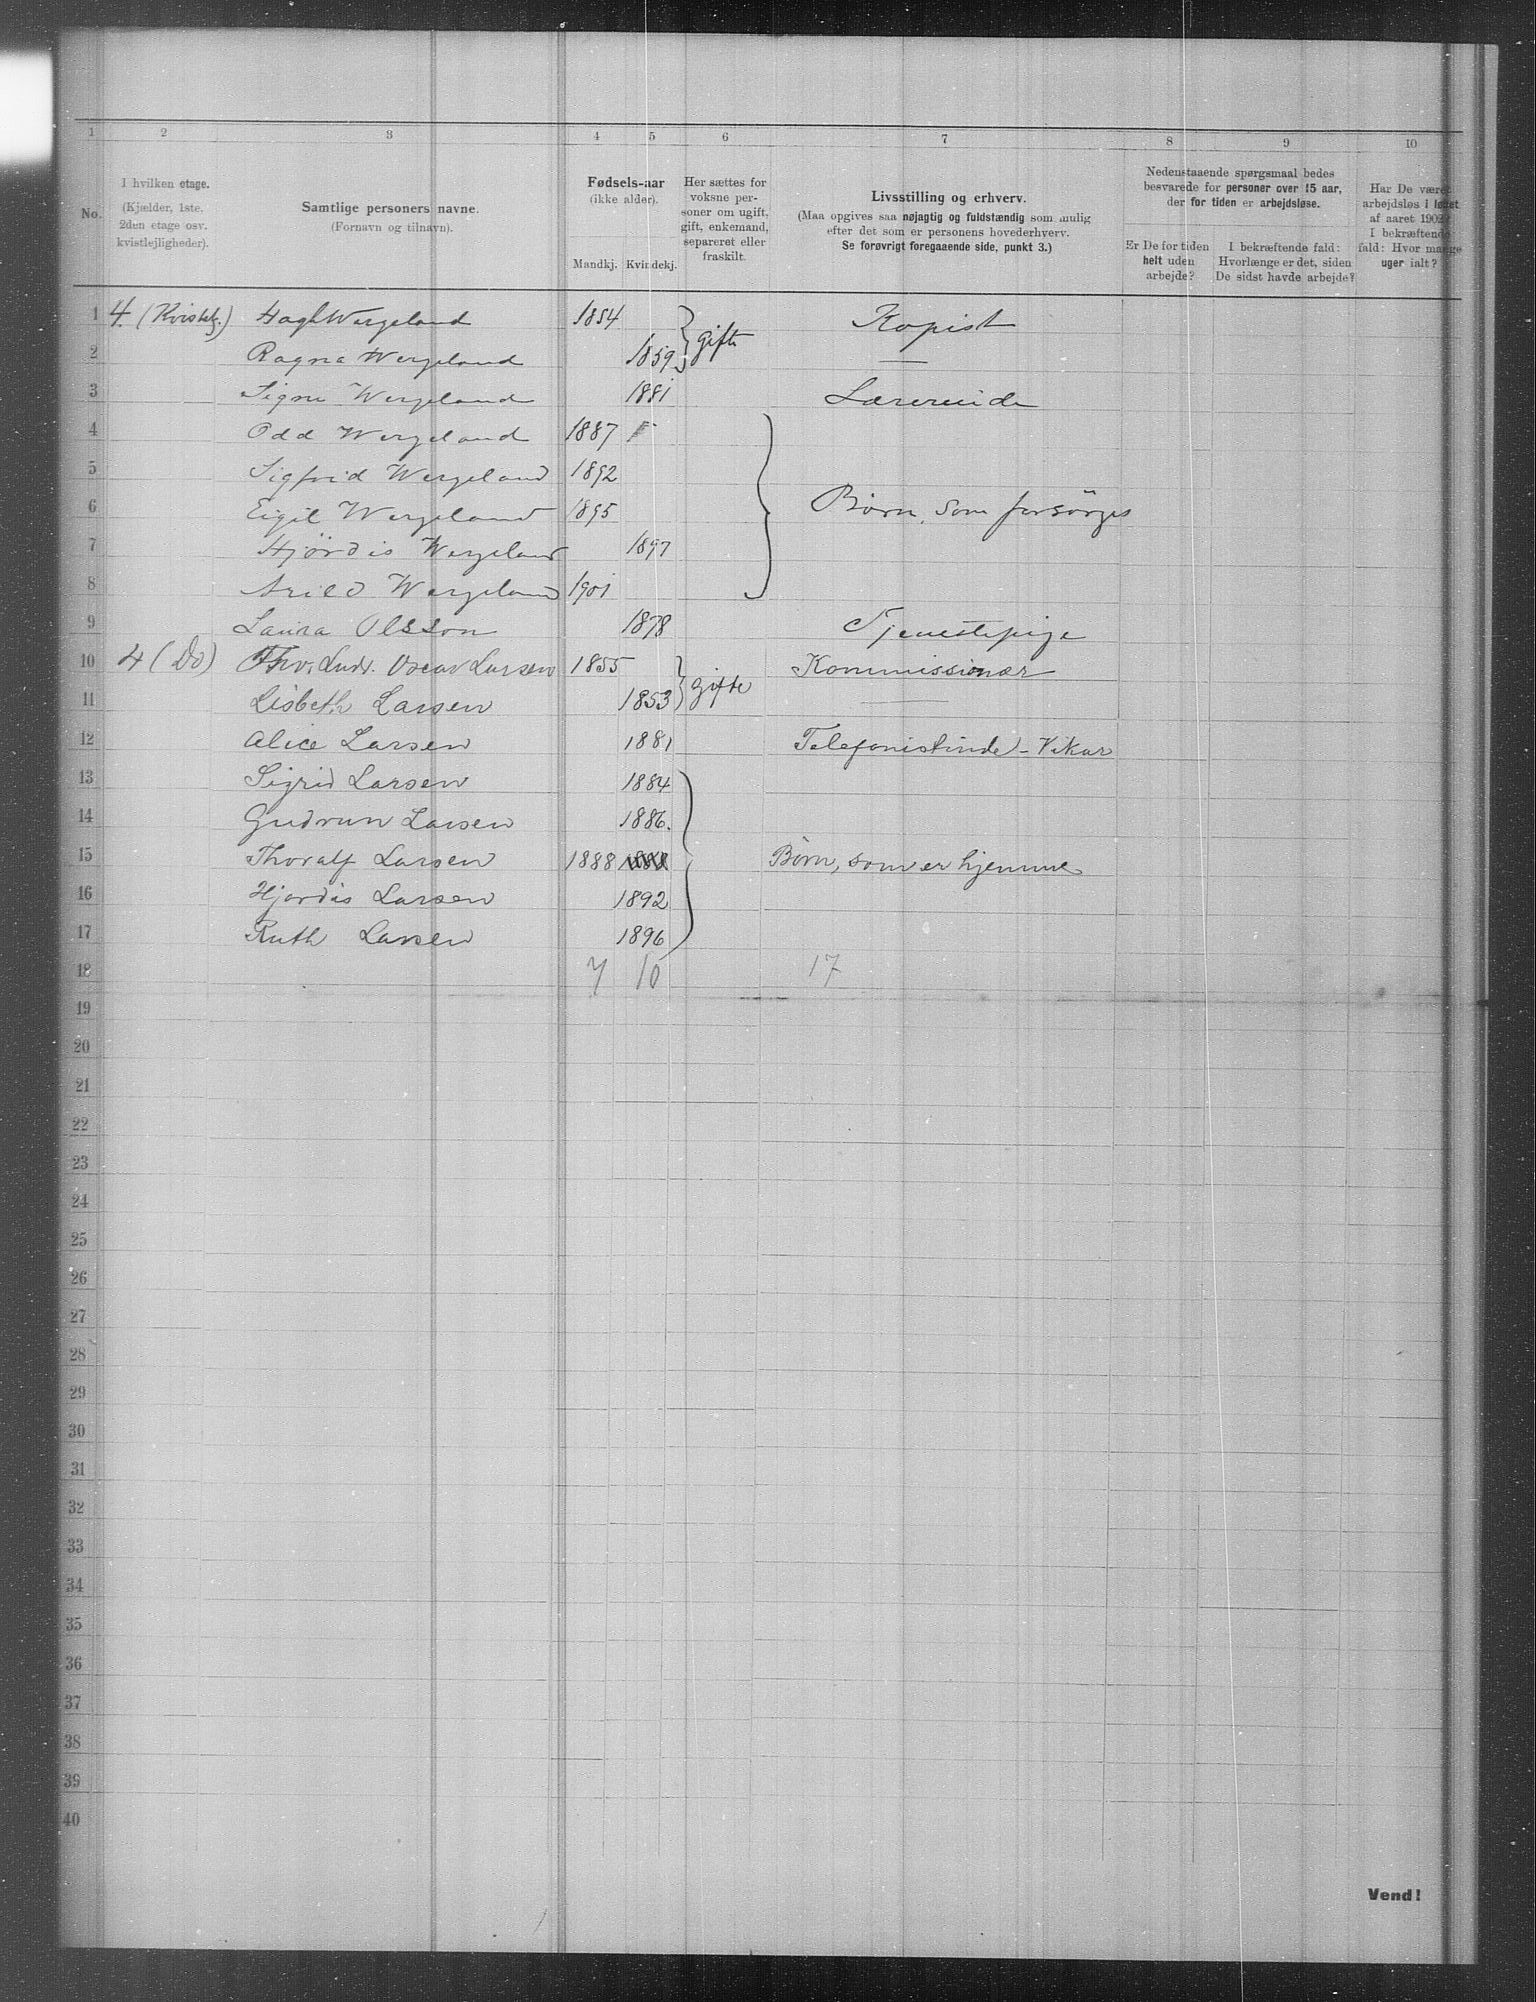 1 2 3 4 5 6 7 8 9 10
No.
I hvilken etage.
(Kjælder, 1ste.
2den etage osv.
kvistlejligheder).
Samtlige personers navne.
(Fornavn og tilnavn).
Fødsels-aar
(ikke alder).
Mandkj. Kvindekj.
Her sættes for
voksne per-
soner om ugift,
gift, enkemand,
separeret eller
fraskilt.
Livsstilling og erhverv.
(Maa opgives saa nøjagtig og fuldstændig som mulig
efter det som er personens hovederhverv.
Se forøvrigt foregaaende side, punkt 3.)
Nedenstaaende spørgsmaal bedes
besvarede for personer over 15 aar,
der for tiden er arbejdsløse.
Er De for tiden
helt uden
arbejde?
I bekræftende fald:
Hvorlænge er det, siden
De sidst havde arbejde?
Har De været
arbejdsløs i løbet
af aaret 1902?
I bekræftende
fald: Hvor mange
uger ialt?
1 4. (Kvistlj.) Wergeland 1854 gifte Kopist
2 Ragna Wergeland 1859 —
3 Signe Wergeland 1881 Lærerinde
4 Odd Wergeland 1887
5 Sigfrid Wergeland 1892
6 Eigil Wergeland 1895 Børn, som forsörges
7 Hjördis Wergeland 1897
8 Arild Wergeland 1901
9 Laura Olsson 1878 Tjenestepige
10 4 (Do) Thv. Ludv. Oscar Larsen 1855 gifte Kommissionær
11 Lisbeth Larsen 1853 —
12 Alice Larsen 1881 Telefonistinde - Vikar
13 Sigrid Larsen 1884
14 Gudrun Larsen 1886.
15 Thoralf Larsen 1888 1888 Børn, som er hjemme
16 Hjordis Larsen 1892
17 Ruth Larsen 1896
18 7 10 17
19
20
21
22
23
24
25
26
27
28
29
30
31
32
33
34
35
36
37
38
39
40
Vend!